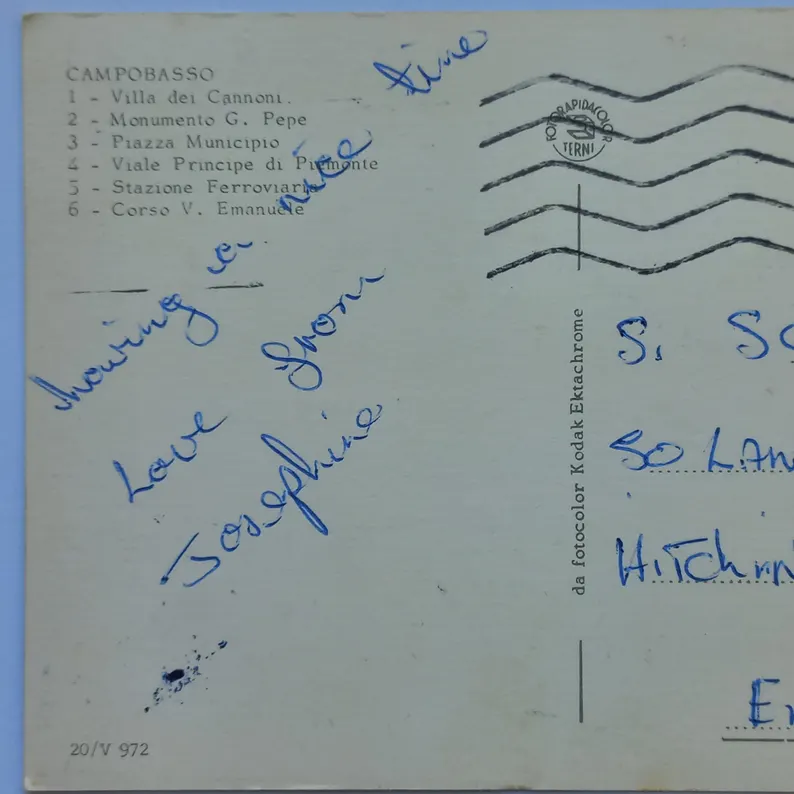 CAMPOBASSO
1 - Villa dei Cannoni.
2 - Monumento G. Pepe
3 - Piazza Municipio
4 - Viale Principe di Piemonte
5 - Stazione Ferroviaria
6 - Corso V. Emanuele
having a nice time
Love from
Josephine
20/V 972
FOTORAPIDACOLOR
TERNI
da fotocolor Kodak Ektachrome
S. SC
50 LAN
HITCHIN
En